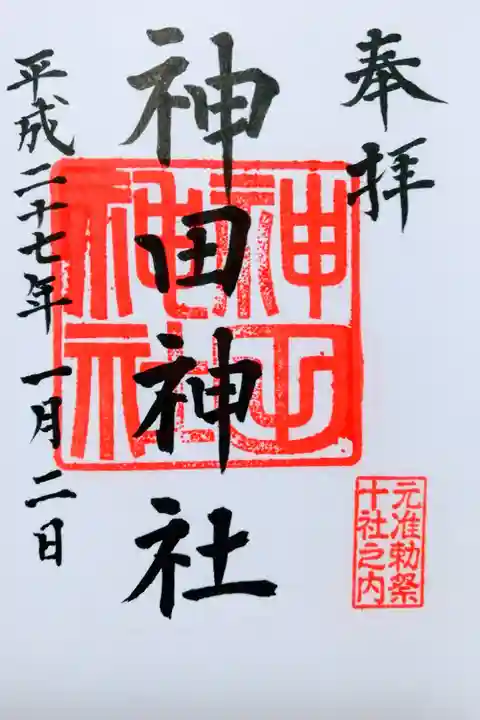 奉拝
神田神社
平成二十七年一月二日
元准勅祭
十社之内